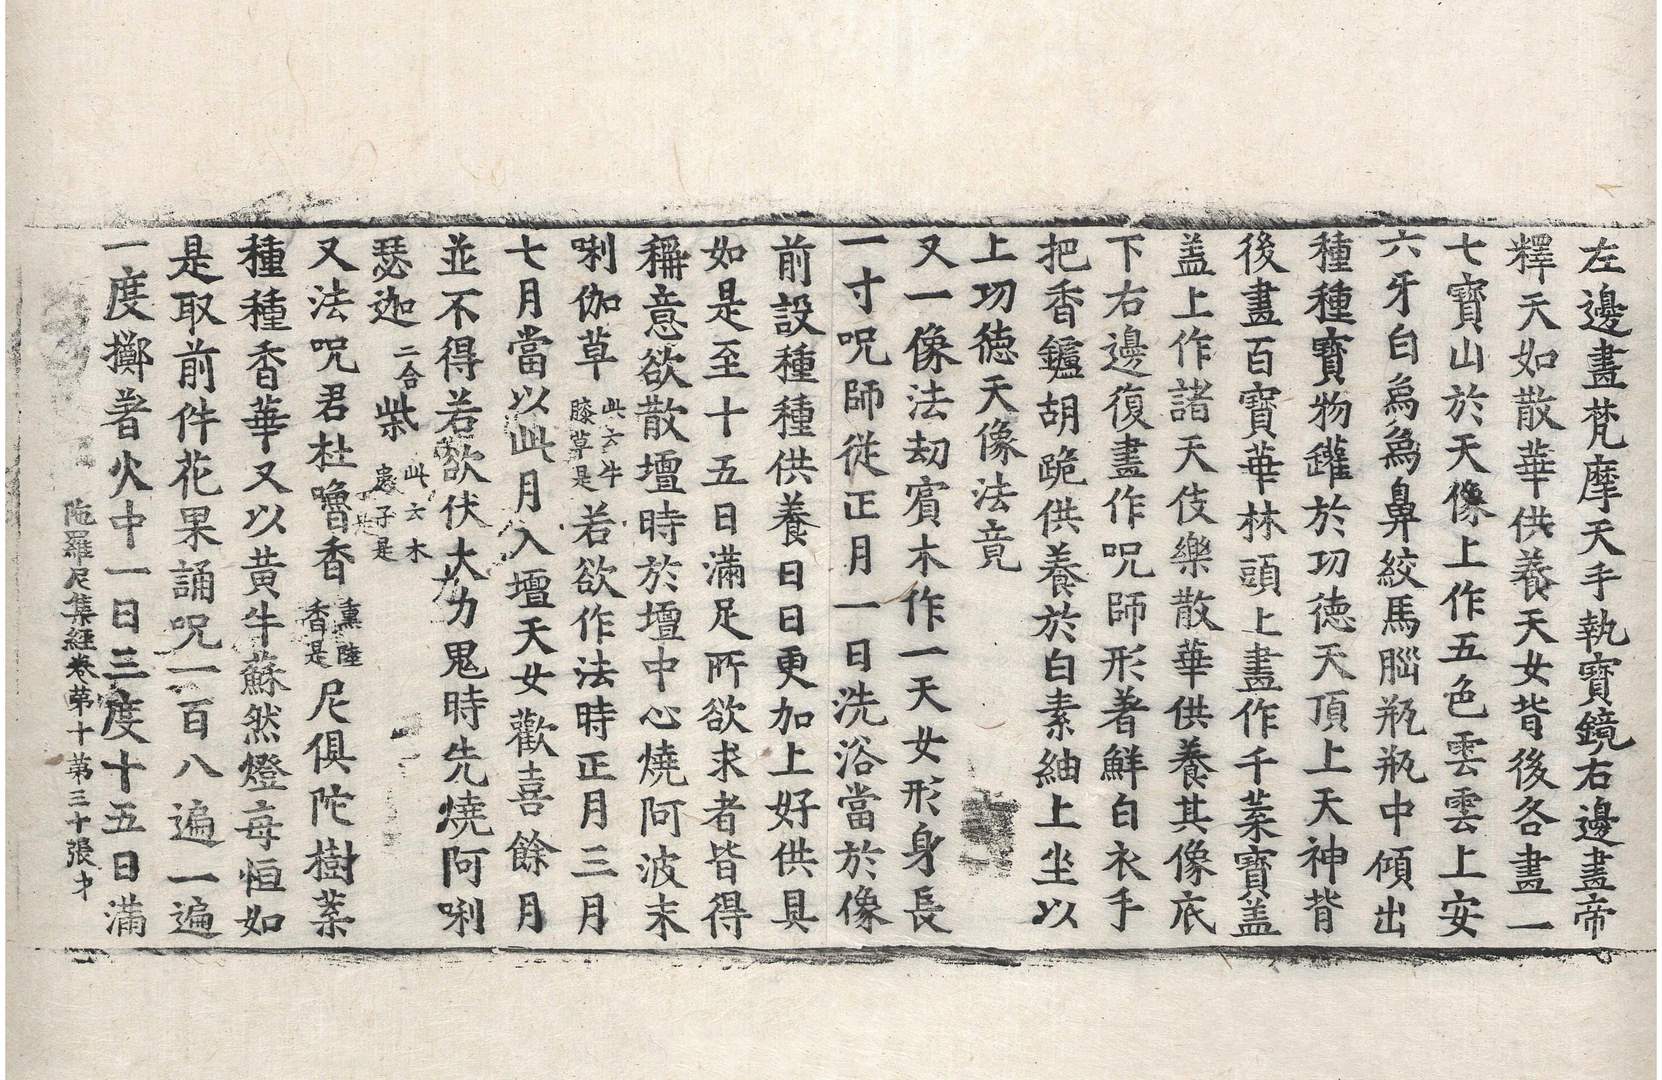 左邊畫梵摩天手執寶鏡右邊畫帝
釋天如散華供養天女背後各畫一
七寶山於天像上作五色雲雲上安
六牙白烏烏鼻絞馬腦瓶瓶中傾出
種種寶物鑵於功德天頂上天神背
後畫百寶華林頭上畫作千葉寶盖
盖上作諸天伎樂散華供養其像底
下右邊復畫作呪師形著鮮白衣手
把香鑪胡跪供養於白素紬上坐以
上功德天像法竟
又一像法刼賓木作一天女形身長
一寸呪師從正月一日洗浴當於像
前設種種供養日日更加上好供具
如是至十五日滿足所欲求者皆得
稱意欲散壇時於壇中心燒阿波末
唎伽草此云牛膝草是若欲作法時正月三月
七月當以此月入壇天女歡喜餘月
並不得若欲伏大力鬼時先燒阿唎
瑟迦二合柴此云木患子是
又法呪君杜嚕香薰陸香是尼俱陀樹葉
種種香華又以黃牛蘇然燈每恒如
是取前件花果誦呪一百八遍一遍
一度擲著火中一日三度十五日滿
陁羅尼集經卷苐十第三十張才